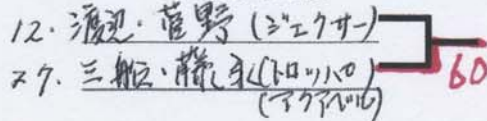 12. 渡辺・菅野 (ジェクサー)
27. 三船・藤永 (トロッパロ)
(アクアベル)
60